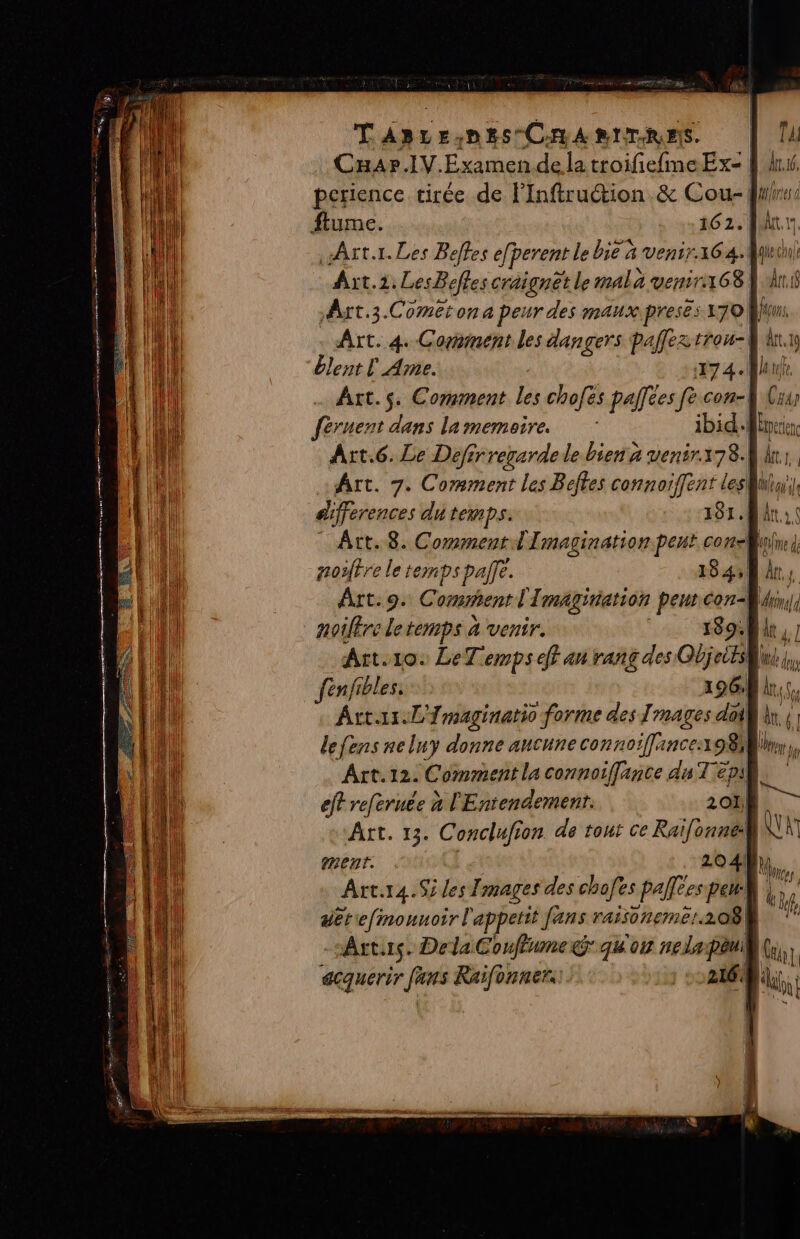 TABLE DES CHAPITRES.
CHAP.IV.Examen de la troiſieſme Ex-
perience tirée de l'Inſtruction & Cou-
ſtume. 162.
Art.1. Les Beſtes eſperent le biẽ à venir.164.
Art.2. Les Beſtes craignẽt le mal à venir.168
Art.3.Comẽt on a peur des maux presẽs 170
Art. 4. Comment les dangers paſſez trou-
blent l'Ame. 174.
Art.5. Comment les choſes paſſées ſe con-
ſeruent dans la memoire. ibid.
Art.6. Le Deſir regarde le bien à venir.178.
Art. 7. Comment les Beſtes connoiſſent les
differences du temps. 181.
Art. 8. Comment l'Imagination peut con-
noiſtre le temps paſſé. 184.
Art.9. Comment l'Imagination peut con-
noiſtre le temps à venir. 189.
Art.10. Le Temps eſt au rang des Objects
ſenſibles. 196.
Art.11.L'Imaginatiõ forme des Images dõt
le ſens ne luy donne aucune connoiſſance.198.
Art.12. Comment la connoiſſance du Tẽps
eſt reſeruée à l'Entendement. 201.
Art. 13. Concluſion de tout ce Raiſonne-
ment. 204
Art.14.Si les Images des choſes paſſées peu-
uẽt eſmouuoir l'appetit ſans raisõnemẽt.208
Art.15. De la Couſtume & qu'on ne la peut
acquerir ſans Raiſonner. 216.